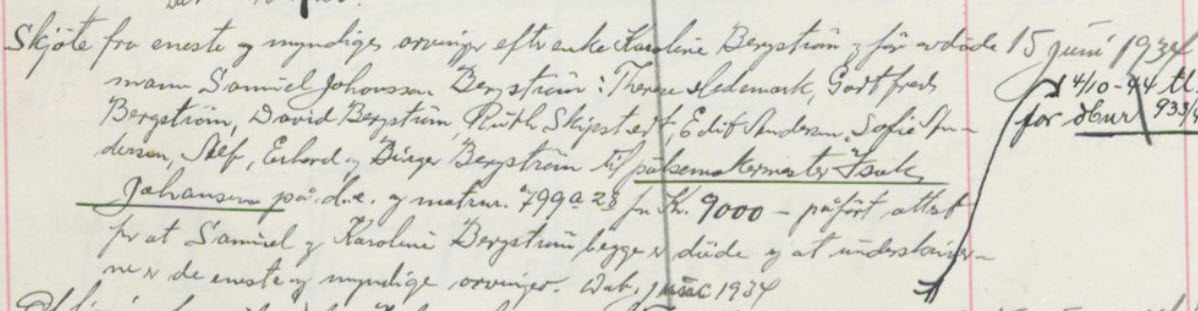 Skjøte fra eneste og myndiges arvinger efter enke Karoline Bergström og før avdøde 15 juni 1934
mann Samuel Johansson Bergström: Therese Hedemark, Gottfred 4/10-44 tl.
Bergström, David Bergström, Ruth Skipstedt, Edit Andersen, Sofie An- for
dersen, Alf, Erhard og Birger Bergström til pølsemakermester Isak
Johansen på d.e. og matrnr. 799a 28 for Kr. 9000 - påført attest
for at Samuel og Karoline Bergström begge er døde og at underskriver-
ne er de eneste og myndige arvinger. 1934